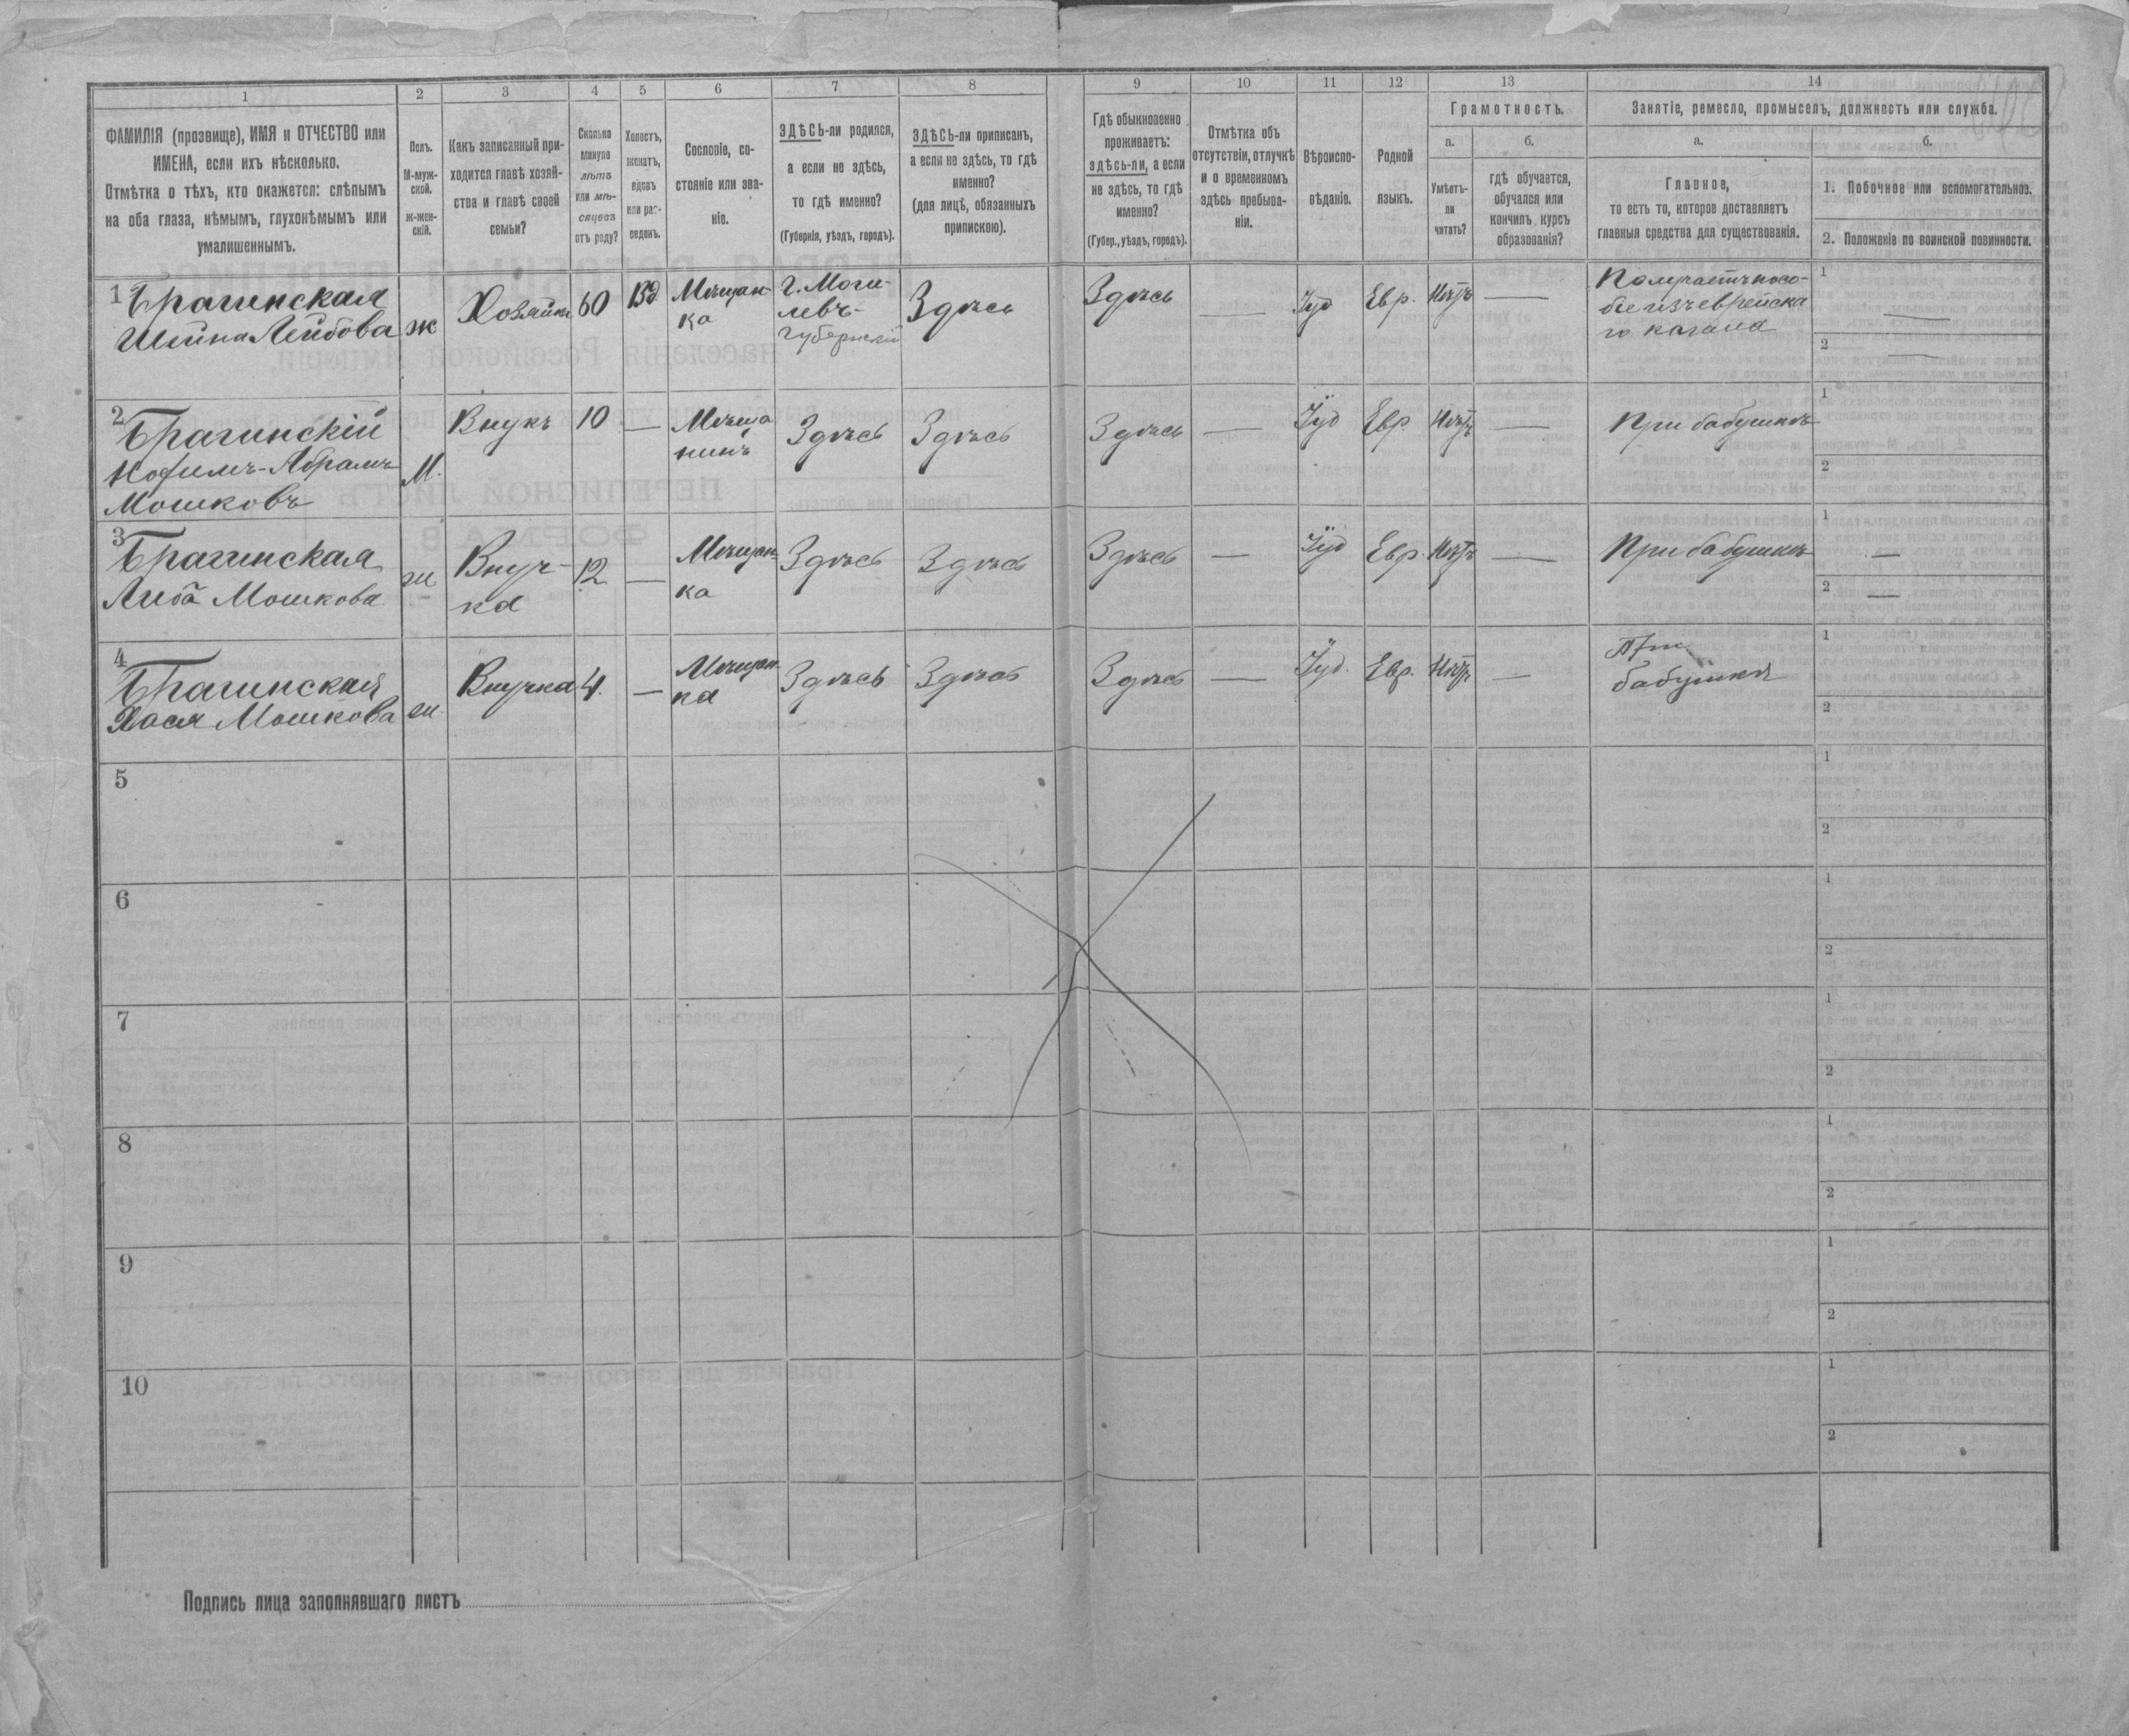 1 2 3 4 5 6 7 8 9 10 11 12 13 14
ФАМИЛІЯ (прозвище), ИМЯ и ОТЧЕСТВО или
ИМЕНА, если ихъ нѣсколько.
Отмѣтка о тѣхъ, кто окажется: слѣпымъ
на оба глаза, нѣмымъ, глухонѣмымъ или
умалишеннымъ.
Полъ.
М-муж-
ской.
ж-жен-
скій.
Какъ записанный при-
ходится главѣ хозяй-
ства и главѣ своей
семьи?
Сколько
минуло
лѣтъ
или мѣ-
сяцевъ
отъ роду?
Холостъ,
женатъ,
вдовъ
или раз-
веденъ.
Сословіе, со-
стояніе или зва-
ніе.
ЗДѢСЬ-ли родился,
а если не здѣсь,
то гдѣ именно?
(Губернія, уѣздъ, городъ).
ЗДѢСЬ-ли приписанъ,
а если не здѣсь, то гдѣ
именно?
(для лицъ, обязанныхъ
припискою).
Гдѣ обыкновенно
проживаетъ:
здѣсь-ли, а если
не здѣсь, то гдѣ
именно?
(Губер., уѣздъ, городъ).
Отмѣтка объ
отсутствіи, отлучкѣ
и о временномъ
здѣсь пребыва-
ніи.
Вѣроиспо-
вѣданіе.
Родной
языкъ.
Грамотность.
а.
Умѣетъ-
ли
читать?
б.
гдѣ обучается,
обучался или
кончилъ курсъ
образованія?
Занятіе, ремесло, промыселъ, должность или служба.
а.
Главное,
то есть то, которое доставляетъ
главныя средства для существованія.
б.
1. Побочное или вспомогательное.
2. Положеніе по воинской повинности.
1 Брагинская
Шейна Лейбова
ж
Хозяйка
60
Вд
Мѣщан-
ка
г. Моги-
левъ-
губернскій
Здѣсь
Здѣсь
—
Іуд
Евр.
Нѣтъ
—
Получаетъ посо-
біе изъ еврейска
го кагала
1 —
2 —
2 Брагинскій
Нофимъ-Абрамъ
Мошковъ
М.
Внукъ
10
—
Мѣща
нинъ
Здѣсь
Здѣсь
Здѣсь
—
Іуд
Евр.
Нѣтъ
—
При бабушкѣ
1
2
3 Брагинская
Либа Мошкова
ж
Внуч-
ка
12
—
Мѣщан-
ка
Здѣсь
Здѣсь
Здѣсь
—
Іуд
Евр.
Нѣтъ
—
При бабушкѣ
1 —
2 —
4 Брагинская
Хася Мошкова
ж.
Внучка
4.
—
Мѣщан-
ка
Здѣсь
Здѣсь
Здѣсь
—
Іуд.
Евр.
Нѣтъ
—
При
бабушкѣ
1
2
5
1
2
6
1
2
7
1
2
8
1
2
9
1
2
10
1
2
Подпись лица заполнявшаго листъ